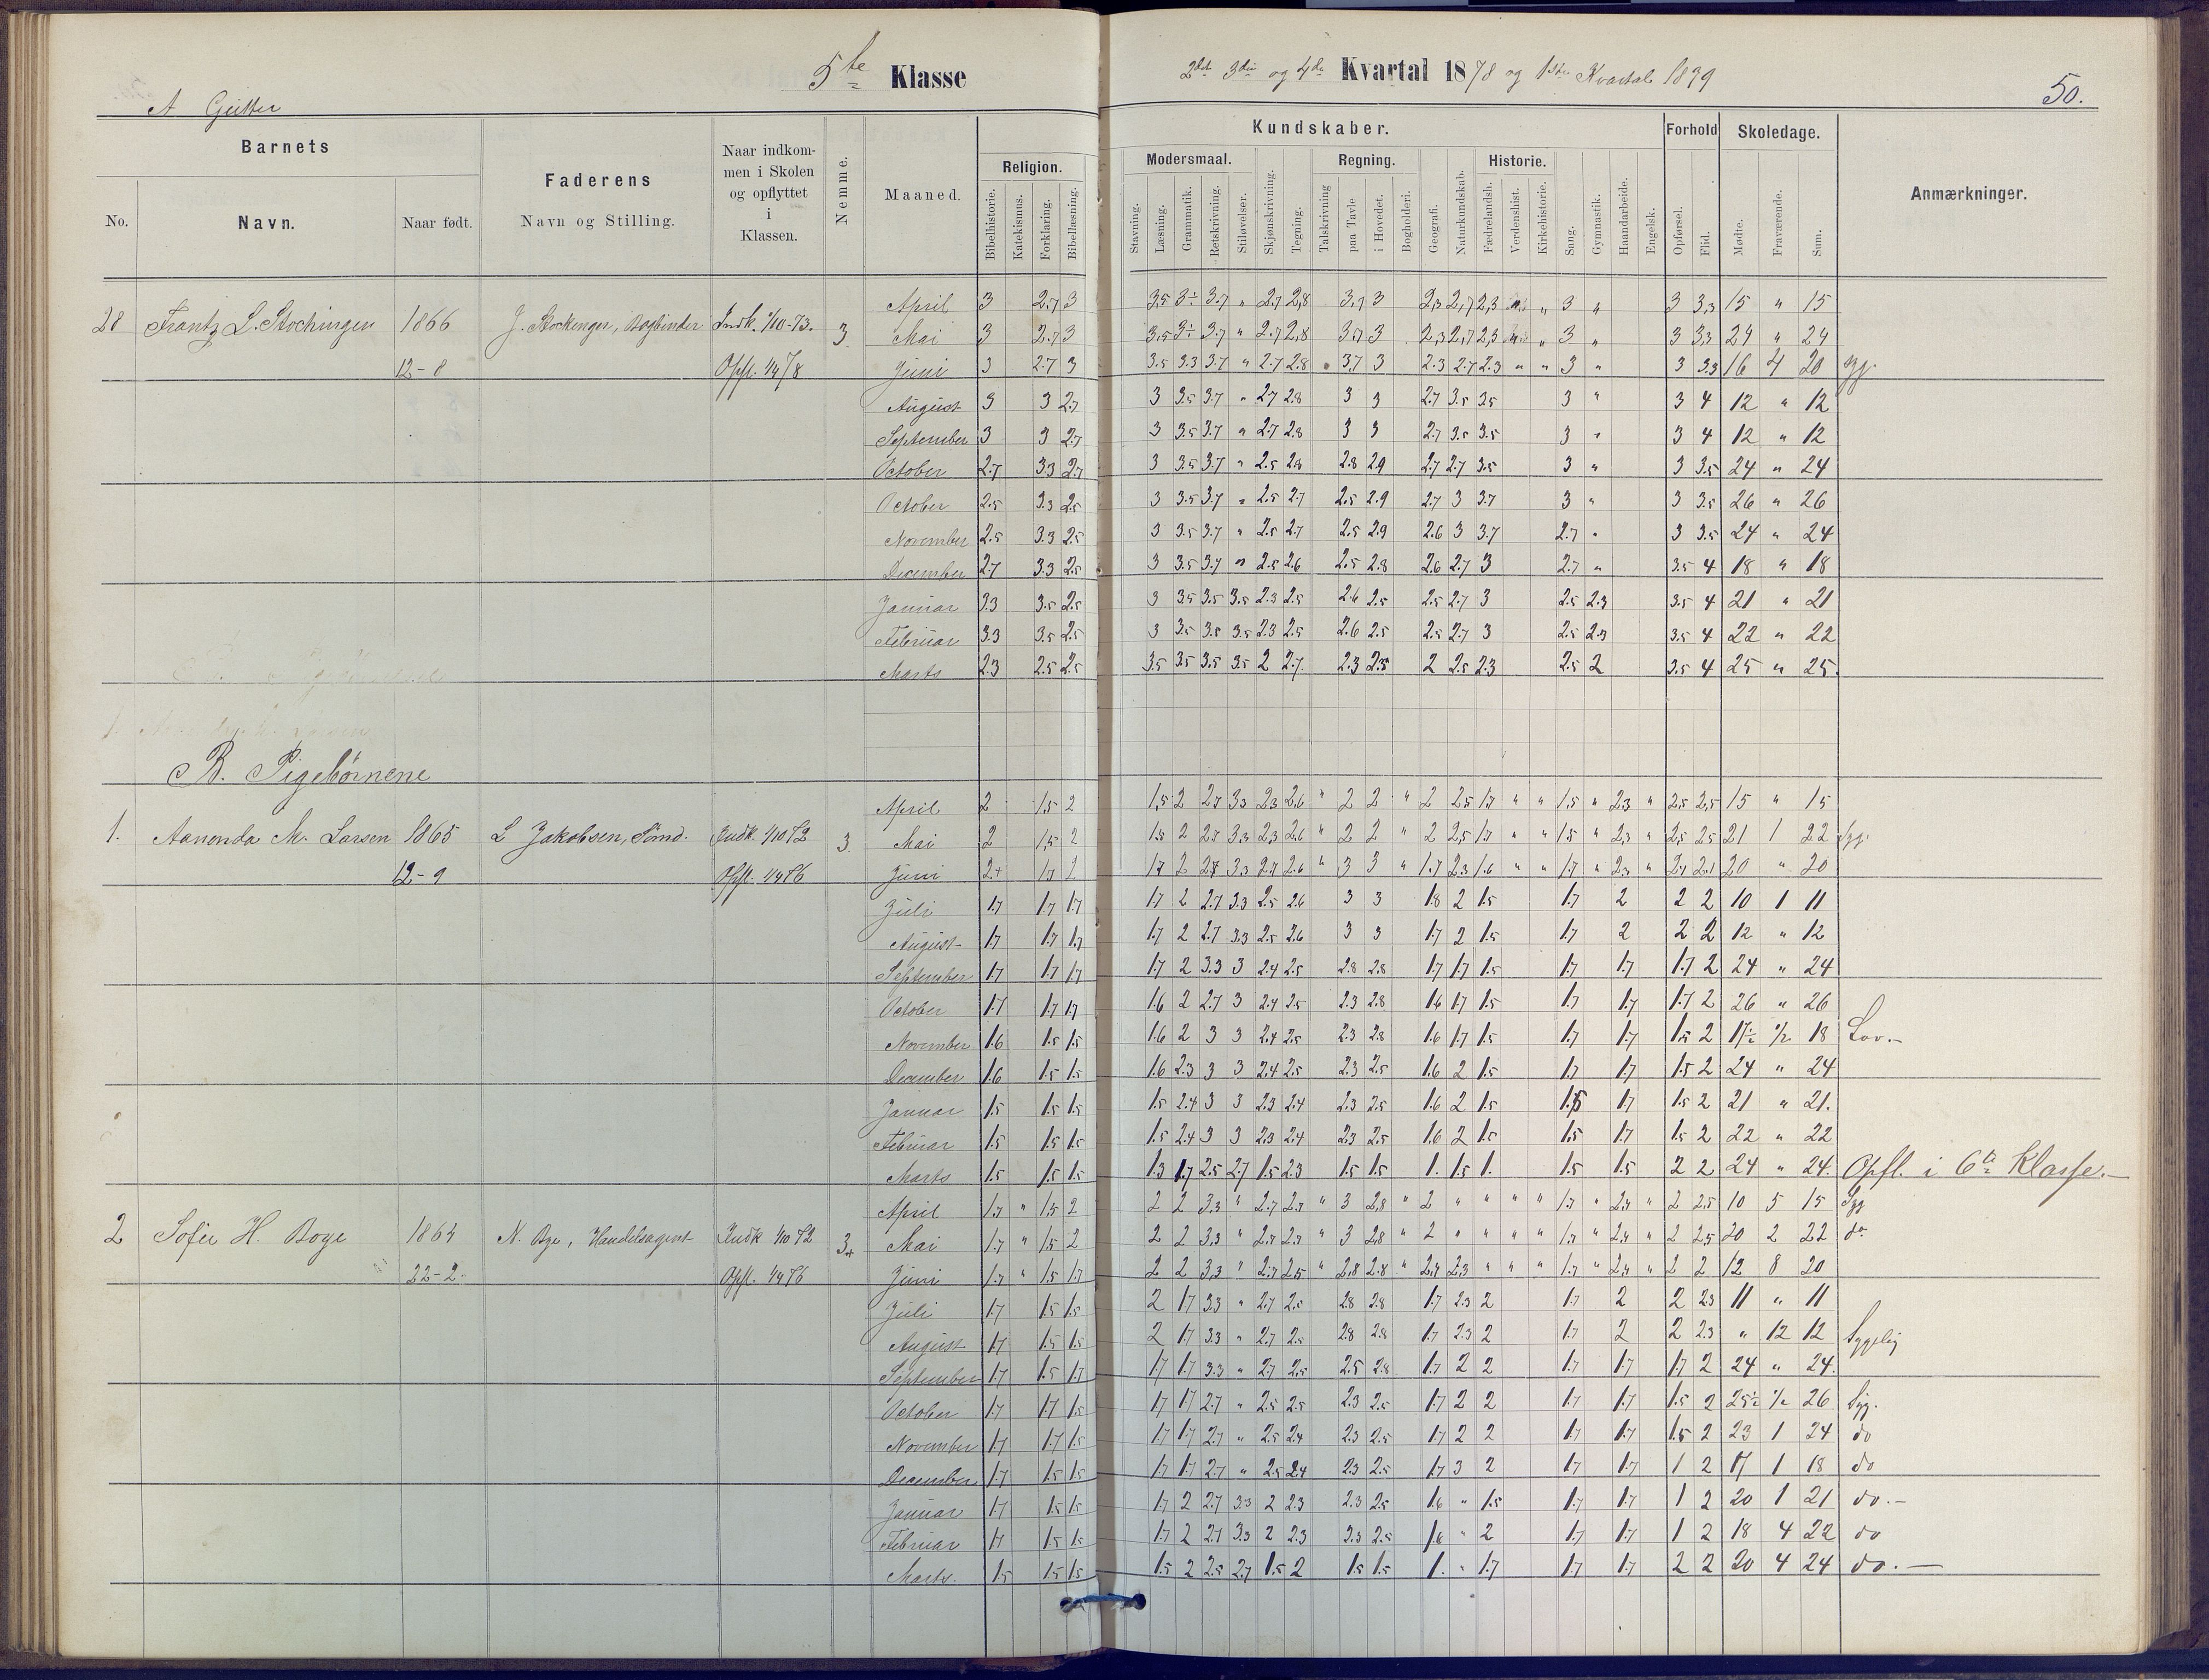 5te Klasse
2det 3die og 4de Kvartal 1878 og 1ste Kvartal 1879
50.
A Gutter
Barnets
No.
Navn.
Naar født.
Faderens
Navn og Stilling.
Naar indkom-
men i Skolen
og opflyttet
i
Klassen.
Nemme.
Maaned.
Religion.
Bibelhistorie.
Katekismus.
Forklaring.
Bibellæsning.
Kundskaber.
Modersmaal.
Stavning.
Læsning.
Grammatik.
Retskrivning.
Stiløvelser.
Skjønskrivning.
Tegning.
Regning.
Talskrivning
paa Tavle
i Hovedet.
Bogholderi.
Geografi.
Naturkundskab.
Historie.
Fædrelandsh.
Verdenshist.
Kirkehistorie.
Sang.
Gymnastik.
Haandarbeide.
Engelsk.
Forhold
Opførsel.
Flid.
Skoledage.
Mødte.
Fraværende.
Sum.
Anmærkninger.
April 3 2.7 3 3,5 3÷ 3.7 " 2.7 2,8 3,7 3 2,3 2,7 2,3 " 3 " 3 3,3 15 " 15
28 Frantz L. Stochinger 1866 J. Stockinger, Bogbinder Indk. 1/10-73. 3. Mai 3 2.7 3 3,5 3÷ 3.7 " 2.7 2,8 3,7 3 2,3 2,7 2,3 " 3 " 3 3,3 24 " 24
12-8 Opfl. 1/4 78 Juni 3 2.7 3 3.5 3.3 3.7 " 2.7 2.8 3,7 3 2.3 2.7 2.3 " " 3 " 3 3.3 16 4 20
August 3 3 2.7 3 3.5 3.7 " 2.7 2.8 3 3 2.7 3.5 3.5 3 " 3 4 12 " 12
September 3 3 2.7 3 3.5 3.7 " 2.7 2.8 3 3 2.7 3.5 3.5 3 " 3 4 12 " 12
October 2.7 3.3 2.7 3 3.5 3.7 " 2.5 2.8 2.8 2.9 2.7 2.7 3.5 3 " 3 3.5 24 " 24
October 2.5 3.3 2.5 3 3.5 3.7 " 2.5 2.7 2.5 2.9 2.7 3 3.7 3 " 3 3.5 26 " 26
November 2.5 3.3 2.5 3 3.5 3.7 " 2.5 2.7 2.5 2.9 2.6 3 3.7 2.7 " 3 3.5 24 " 24
December 2.7 3.3 2.5 3 3.5 3.7 " 2.5 2.6 2.5 2.8 2.6 2.7 3 2.7 " 3.5 4 18 " 18
Januar 3.3 3.5 2.5 3 3.5 3.5 3.5 2.3 2.5 2.6 2.5 2.5 2.7 3 2.5 2.3 3.5 4 21 " 21
Februar 3.3 3.5 2.5 3 3.5 3.5 3.5 2.3 2.5 2.6 2.5 2.5 2.7 3 2.5 2.3 3.5 4 22 " 22
Marts 2.3 2.5 2.5 3.5 3.5 3.5 3.5 2 2.7 2.3 2.5 2 2.5 2.3 2.5 2 3.5 4 25 " 25.
B. Pigebørnene
April 2 1.5 2 1,5 2 2.7 3.3 2.3 2.6 " 2 2 " 2 2.5 1.7 " " 1.5 " 2.3 " 2,5 2,5 15 " 15
1. Aanonda M. Larsen 1865 L Jakobsen, Tømd. Indk. 1/10 72 3. Mai 2 1.5 2 1.5 2 2.7 3.3 2.3 2.6 " 2 2 " 2 2.5 1.7 " " 1.5 " 2.3 " 2.5 2.5 21 1 22 Syg.
12-9 Opfl. 1/4 76 Juni 2+ 1.7 2 1.7 2 2.7 3.3 2.7 2.6 " 3 3 " 1.7 2.3 1.6 " " 1.7 " 2.3 " 2.1 2.1 20 " 20
Juli 1.7 1.7 1.7 1.7 2 2.7 3.3 2.5 2.6 3 3 1.8 2 1.5 1.7 2 2 2 10 1 11
August 1.7 1.7 1.7 1.7 2 2.7 3.3 2.5 2.6 3 3 1.7 2 1.5 1.7 2 2 2 12 " 12
September 1.7 1.7 1.7 1.7 2 3.3 3 2.4 2.5 2.8 2.8 1.7 1.7 1.5 1.7 1.7 1.7 2 24 " 24
October 1.7 1.7 1.7 1.6 2 2.7 3 2.4 2.5 2.3 2.8 1.6 1.7 1.5 1.7 1.7 1.7 2 26 " 26
November 1.6 1.5 1.5 1.6 2 3 3 2.4 2.5 2.3 2.8 1.6 1.7 1.5 1.7 1.7 1.5 2 17½ ½ 18 Lov.-
December 1.6 1.5 1.5 1.6 2.3 3 3 2.4 2.5 2.3 2.5 1.6 2 1.5 1.7 1.7 1.5 2 24 " 24
Januar 1.5 1.5 1.5 1.5 2.4 3 3 2.3 2.4 2.3 2.5 1.6 2 1.5 1.5 1.7 1.5 2 21 " 21.
Februar 1.5 1.5 1.5 1.5 2.4 3 3 2.3 2.4 2.3 2.5 1.6 2 1.5 1.5 1.7 1.5 2 22 " 22
Marts 1.5 1.5 1.5 1.3 1.7 2.5 2.7 1.5 2.3 1.5 1.5 1. 1.5 1. 1.5 1.5 2 2 24 " 24. Opfl. i 6te Klasse.-
April 1.7 " 1.5 2 2 2 3.3 " 2.7 2.7 " 3 2,8 " 2 " " " " 1.7 " 2.4 " 2 2.5 10 5 15 Syg
2 Sofie H. Boye 1864 N. Bye, Handelsagent Indk 1/10 72 3+ Mai 1.7 " 1.5 2 2 2 3.3 " 2.7 2.7 " 3 2,8 " 2 " " " " 1.7 " 2.4 " 2 2.5 20 2 22 do
22-2- Opfl. 1/4 76 Juni 1.7 " 1.5 1.7 2 2 3.3 " 2.7 2.5 " 2,8 2.8 " 2.4 2.3 " " " 1.7 " 2.4 " 2 2 12 8 20
Juli 1.7 1.5 1.5 2 1.7 3.3 " 2.7 2.5 2.8 2.8 1.7 2.3 2 1.7 2 2 2.3 11 " 11
August 1.7 1.5 1.5 2 1.7 3.3 " 2.7 2.5 2.8 2.8 1.7 2.3 2 1.7 2 2 2.3 " 12 12 Sygelig
September 1.7 1.5 1.7 1.7 1.7 3.3 " 2.7 2.5 2.5 2.8 1.7 2 2 1.7 1.7 1.7 2 24 " 24.
October 1.7 1.7 1.5 1.7 1.7 2.7 " 2.5 2.5 2.3 2.5 1.7 2 2 1.7 1.7 1.5 2 25½ ½ 26 Syg.
November 1.7 1.7 1.5 1.7 1.7 2.7 " 2.5 2.4 2.3 2.5 1.7 2 2 1.7 1.7 1.5 2 23 1 24 do
December 1.7 1.5 1.5 1.7 1.7 2.7 " 2.5 2.4 2.3 2.5 1.7 3 2 1.7 1.7 1 2 17 1 18 do
Januar 1.7 1.5 1.5 1.7 2 2.7 3.3 2 2.3 2.3 2.5 1.6 " 1.5 1.7 1.7 1 2 20 1 21 do.-
Februar 1.7 1.5 1.5 1.7 2 2.7 3.3 2 2.3 2.3 2.5 1.6 " 2 1.7 1.7 1 2 18 4 22 do
Marts. 1.5 1.5 1.5 1.5 2 2.5 2.7 1.5 2 1.5 1.5 1. " 1.7 1.7 1.7 2 2 20 4 24 do.-